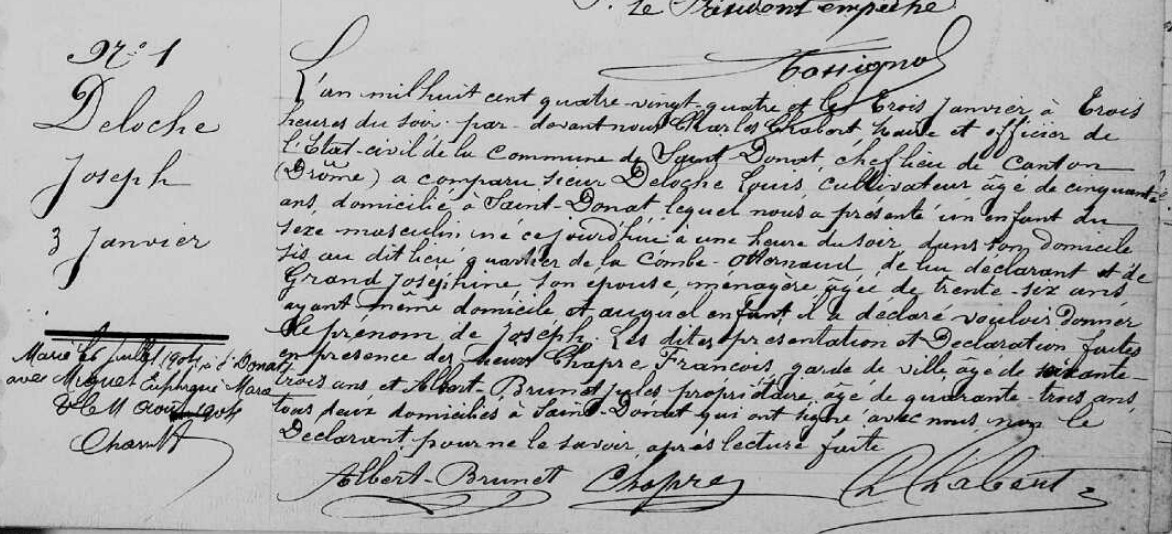 P. Le Président empêché
Fossignol
N° 1
Deloche
Joseph
3 Janvier
Marié le 6 juillet 1904 à St Donat
avec Miguet Euphrasie Marie
Le 11 Août 1904
L'an mil huit cent quatre-vingt-quatre et le trois Janvier à trois
heures du soir par-devant nous Charles Chabert maire et officier de
l'Etat-civil de la commune de Saint-Donat, chef lieu de canton
(Drôme) a comparu sieur Deloche Louis, cultivateur âgé de cinquante
ans, domicilié à Saint-Donat lequel nous a présenté un enfant du
sexe masculin, né cejourd'hui à une heure du soir dans son domicile
sis au dit lieu quartier de la Combe- de lui déclarant et de
Grand Joséphine son épouse, ménagère âgée de trente-six ans
ayant même domicile et auquel enfant il a déclaré vouloir donner
le prénom de Joseph. Les dites présentation et Déclaration faites
en présence des sieurs Chapre François, garde de ville âgé de soixante-
trois ans et Albert-Brunet Jules propriétaire, âgé de quarante-trois ans,
tous deux domiciliés à Saint-Donat qui ont signé avec nous non le
Déclarant pour ne le savoir, après lecture faite
Albert-Brunet Chapre Ch Chabert